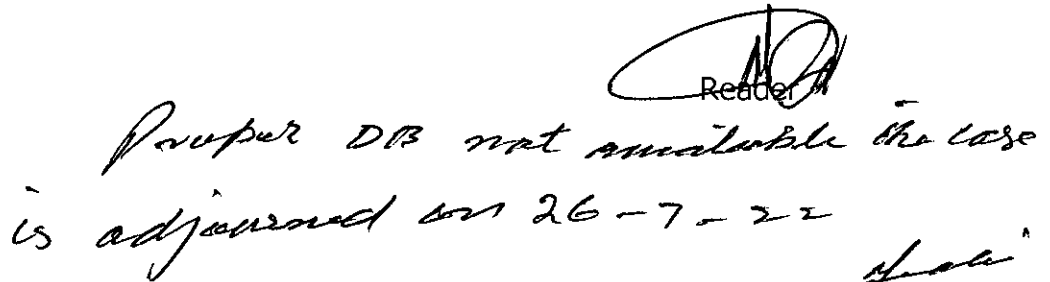 Reader
Proper DB not available the case
is adjourned on 26-7-22